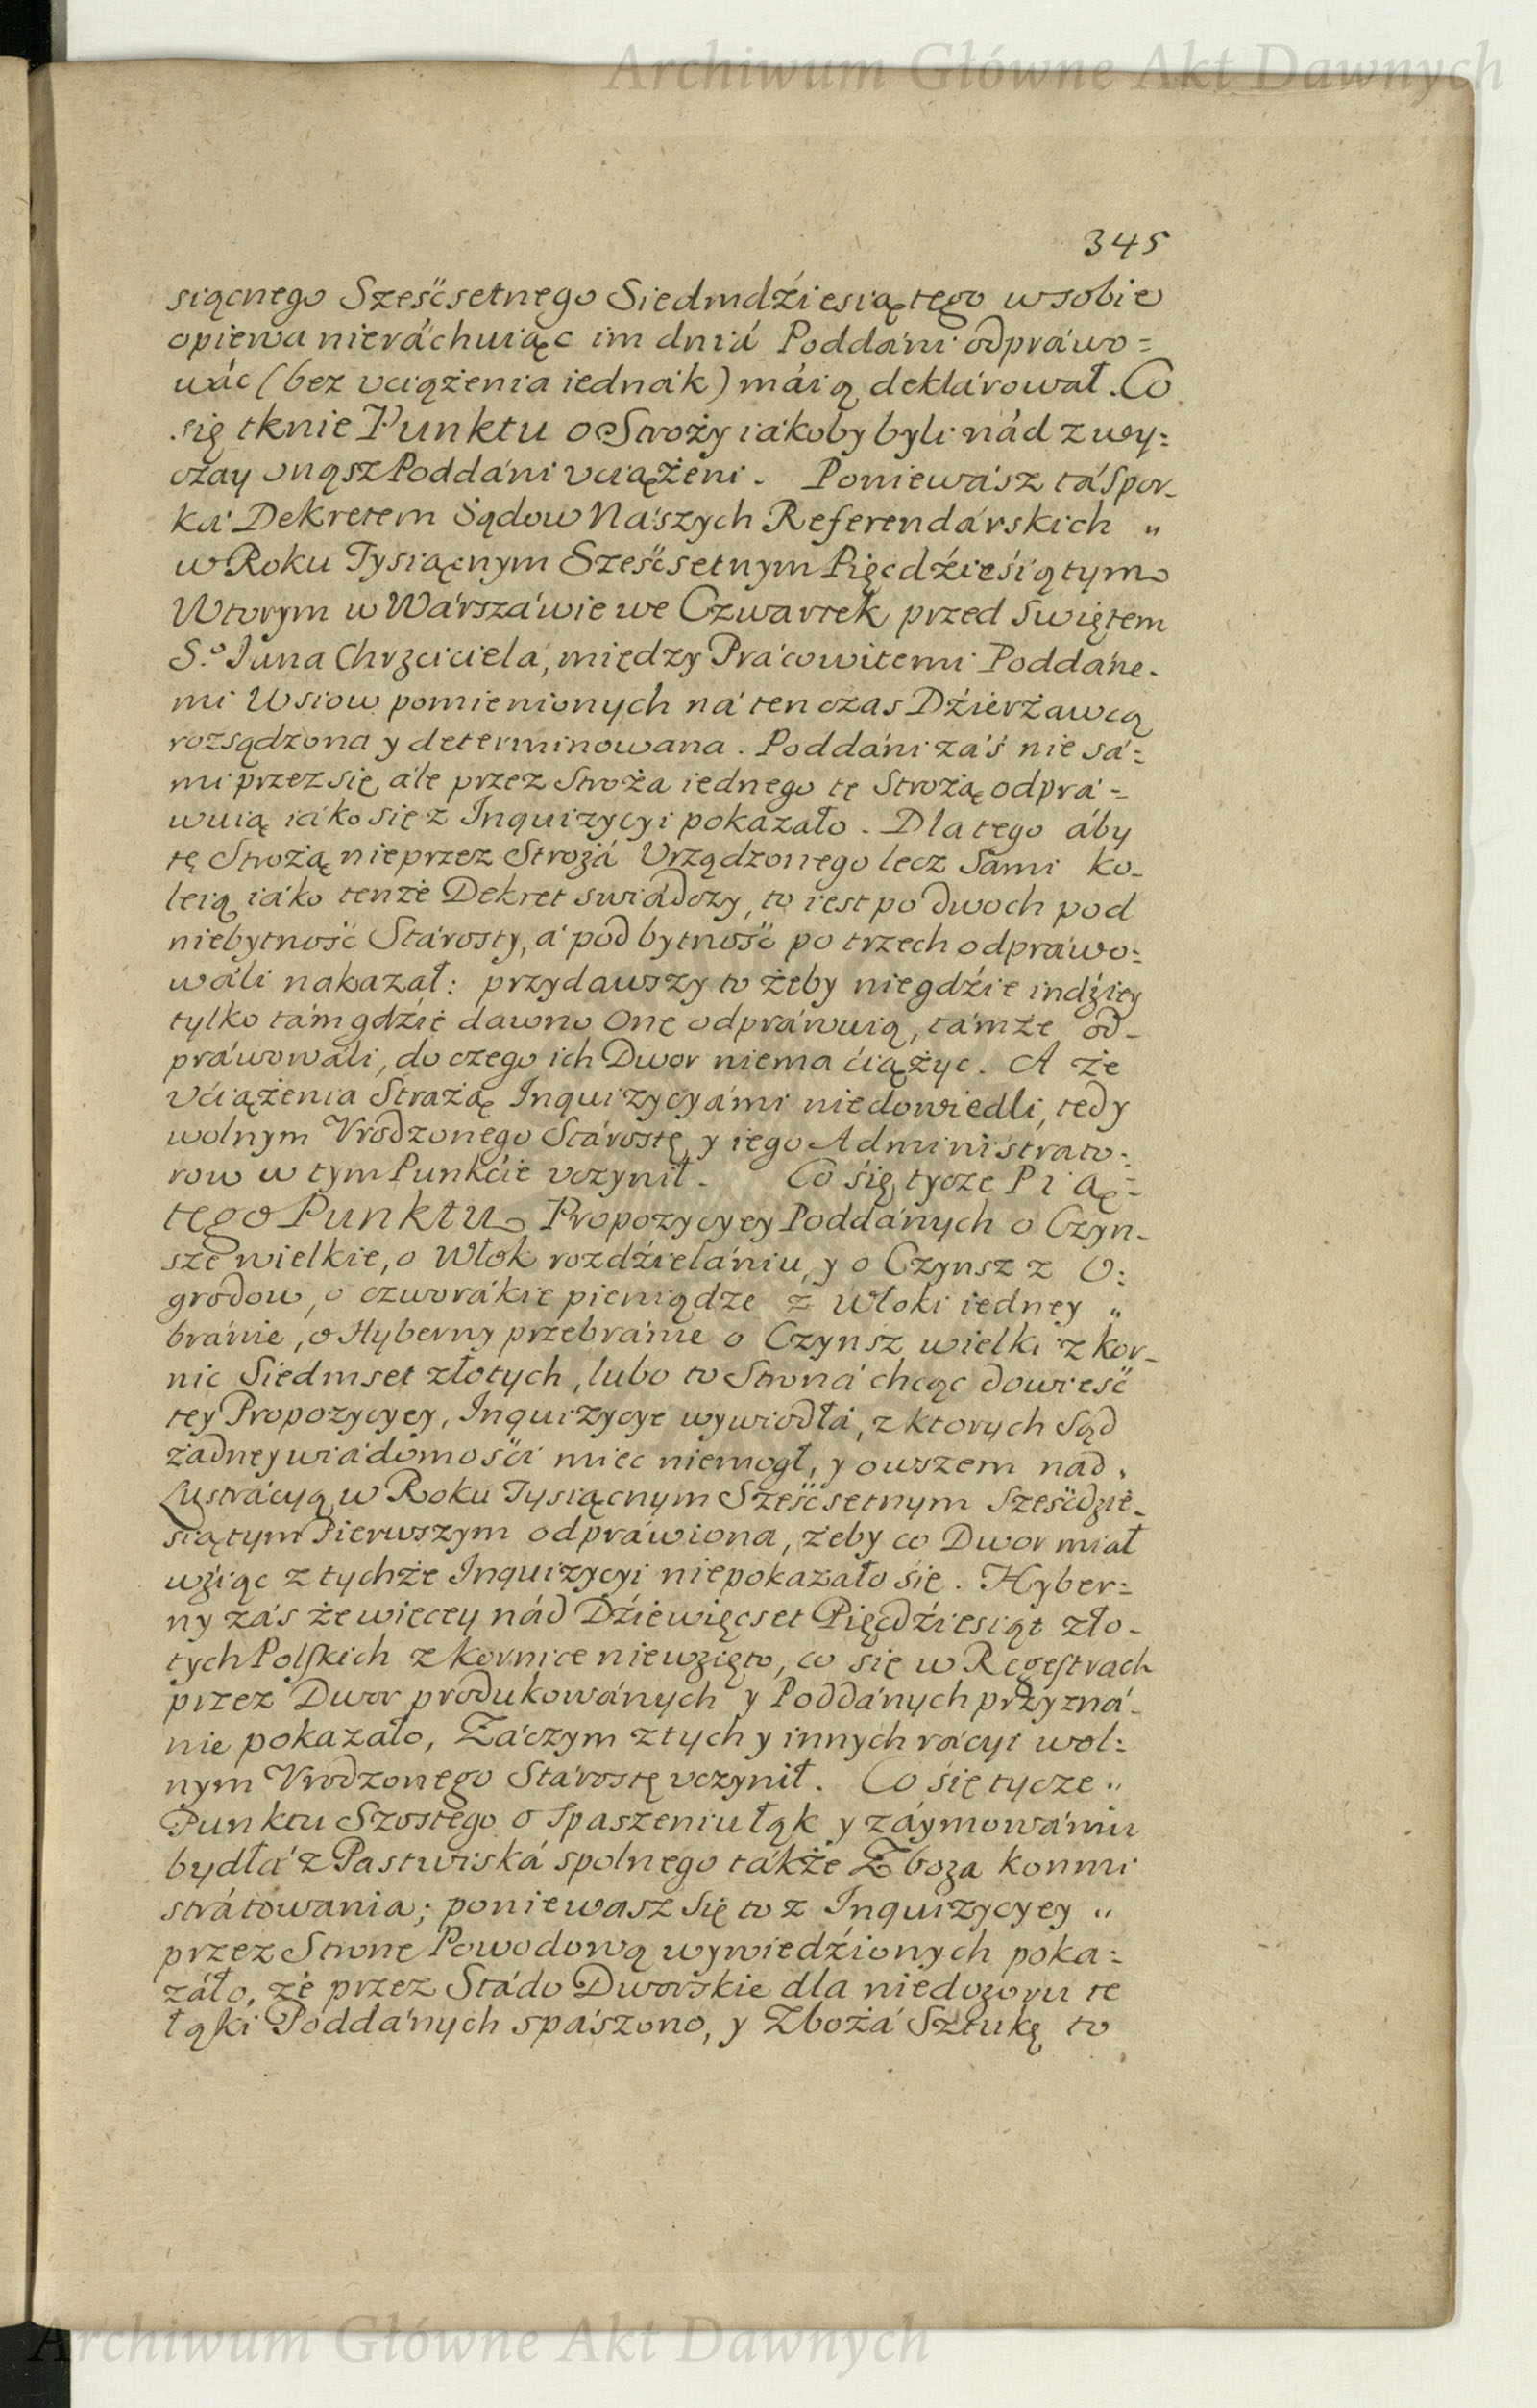 Archiwum Główne Akt Dawnych
345
siącnego Sześćsetnego Siedmdźiesiątego w sobie
opiewa nieráchuiąc im dniá Poddáni odpráwo=
wáć (bez vciążenia iednák) máią deklárował. Co
się tknie Punktu o Stroży iákoby byli nád zwy=
czay onąsz Poddáni vciążeni. Poniewász tá Spor-
ká Dekretem Sądow Nászych Referendárskich „
w Roku Tysiącnym Sześćsetnym Pięćdźieśiątym
Wtorym w Wárszáwie we Czwartek przed Swiętem
S.º Jana Chrzciciela, między Prácowitemi Poddáne-
mi Wsiow pomienionych ná ten czas Dźierżawcą
rozsądzona y determinowana. Poddáni záś nie sá=
mi przez się, ále przez Stroża iednego tę Strożą odprá=
wuią iáko się z Inquizycyi pokazáło. Dla tego áby
tę Strożą nie przez Strożá Vrządzonego lecz Sámi ko-
leią iáko tenże Dekret swiádczy, to iest po dwoch pod
niebytność Stárosty, á pod bytność po trzech odpráwo=
wáli nakazał: przydawszy to żeby niegdźie indźiey
tylko tám gdźie dawno One odpráwuią, támże od-
práwowáli, do czego ich Dwor niema ćiążyc. A że
vćiążenia Strażą Inquizycyámi niedowiedli, tedy
wolnym Vrodzonego Stárostę y iego Administrato=
row w tym Punkćie vczynił. Co się tycze Pią=
tego Punktu Propozycyey Poddánych o Czyn-
sze wielkie, o Włok rozdźielániu, y o Czynsz z O=
grodow, o czworákie pieniądze z Włoki iedney „
bránie, o Hyberny przebránie o Czynsz wielki z kor-
nic Siedmset złotych, lubo to Stroná chcąc dowieść
tey Propozycyey, Inquizycye wywiodłá, z ktorych Sąd
żadney wiádomośći miec niemogł, y owszem nád
Lustrácyą w Roku Tysiącnym Sześćsetnym Sześćdźie-
siątym Pierwszym odpráwiona, żeby co Dwor miał
wźiąc z tychże Inquizycyi niepokazało się. Hyber=
ny zás że więcey nád Dźiewięcset Pięćdźiesiąt zło-
tych Polskich z kornice niewzięto, co się w Regestrach
przez Dwor produkowánych y Poddánych przyzná-
nie pokazało, Záczym z tych y innych rácyi wol=
nym Vrodzonego Stárostę vczynił. Co się tycze „
Punktu Szostego o Spaszeniu łąk y záymowániu
bydłá z Pastwiská spolnego tákże Zboża konmi
strátowania; poniewasz się to z Inquizycyey „
przez Strone Powodową wywiedźionych poka=
záło, że przez Stádo Dworskie dla niedozoru te
łąki Poddánych spászono, y Zbożá Sztukę to
Archiwum Główne Akt Dawnych